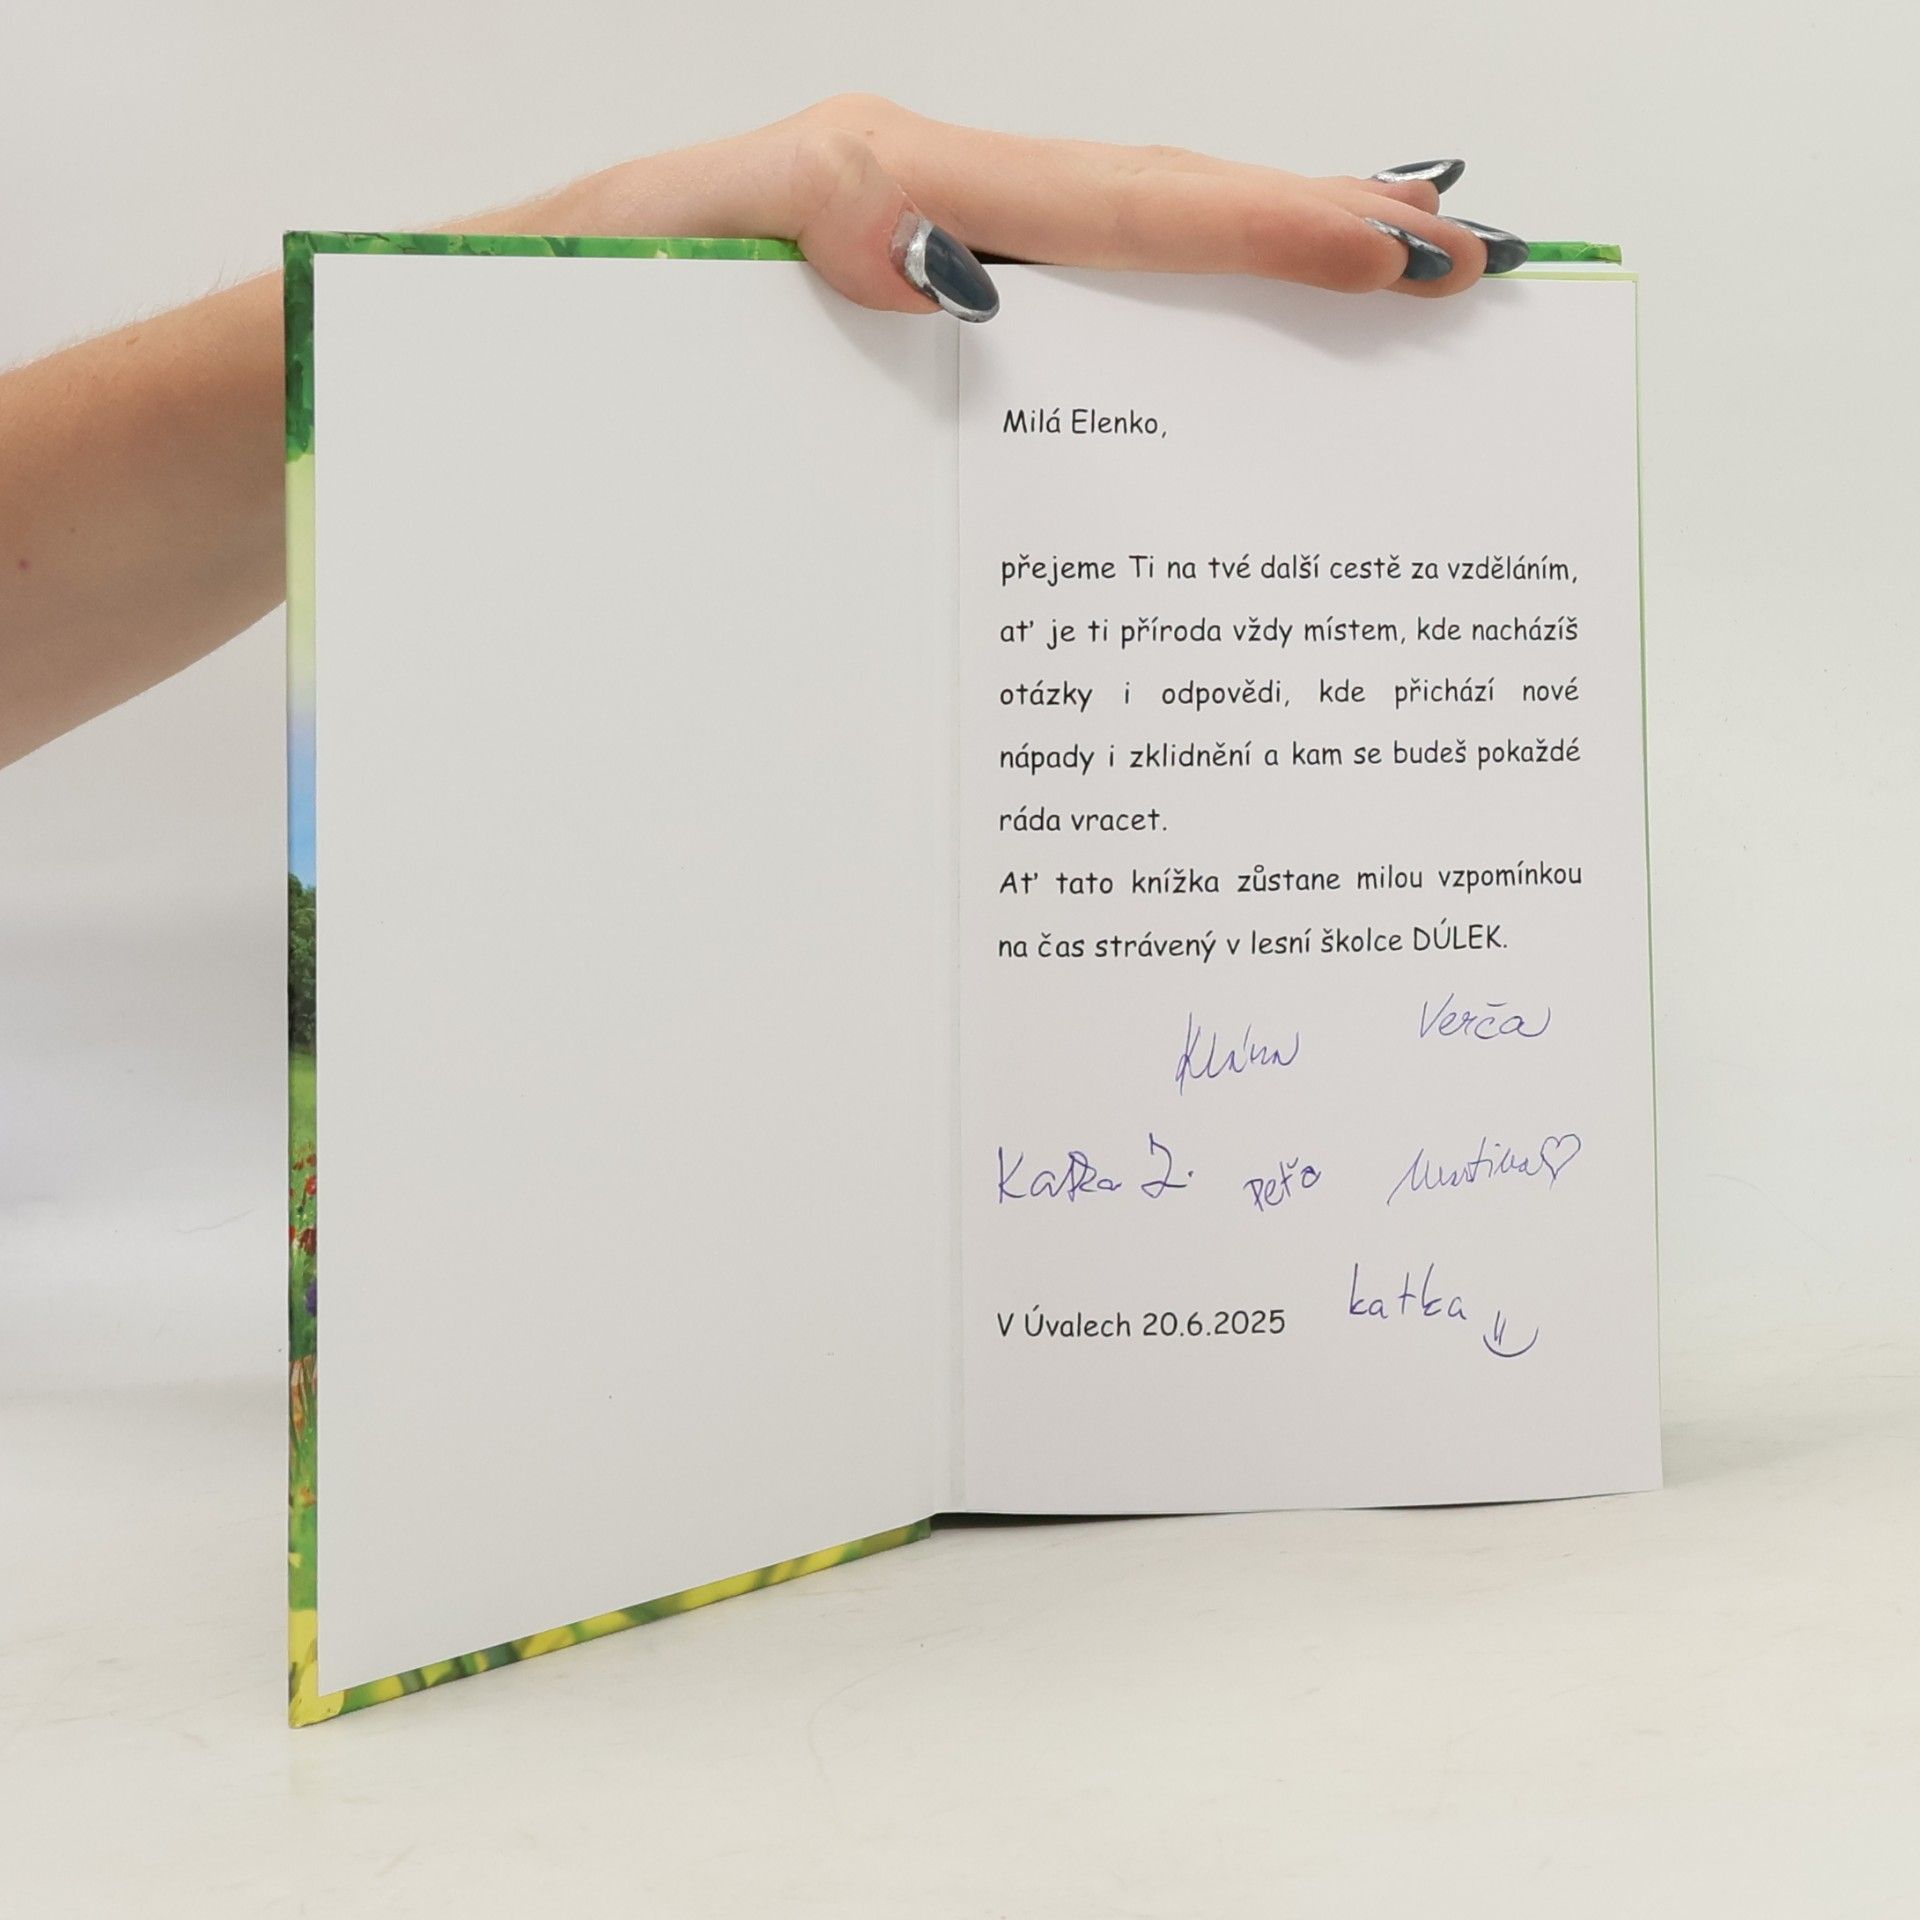 Milá Elenko,
přejeme Ti na tvé další cestě za vzděláním,
ať je ti příroda vždy místem, kde nacházíš
otázky i odpovědi, kde přichází nové
nápady i zklidnění a kam se budeš pokaždé
ráda vracet.
Ať tato knížka zůstane milou vzpomínkou
na čas strávený v lesní školce DÚLEK.
Verča
Klára
Katka Z. Peťa Martina♡
katka
V Úvalech 20.6.2025